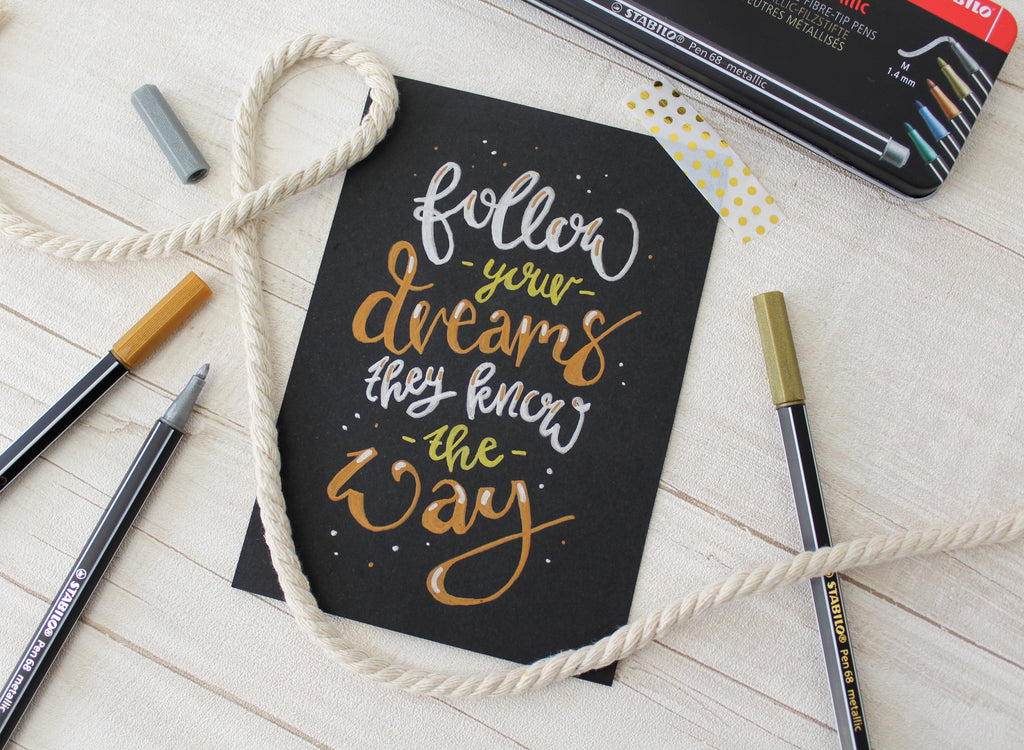 follow
- your -
dreams
they know
- the -
way
STABILO
FIBRE-TIP PENS
METALLIC-FILZSTIFTE
FEUTRES MÉTALLISÉS
STABILO Pen 68 metallic
M
1.4 mm
STABILO Pen 68 metallic
STABILO Pen 68 metallic